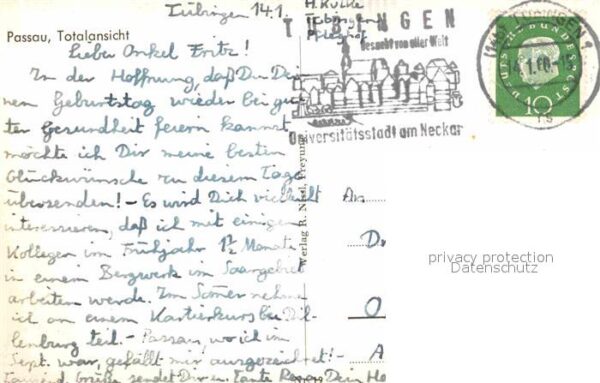 Tübingen 14.1.
H. Kulke
Tübingen
Pfleghof
Passau, Totalansicht
Lieber Onkel Fritz!
In der Hoffnung, daß Du Dei-
nen Geburtstag wieder bei gu-
ter Gesundheit feiern kannst
möchte ich Dir meine besten
Glückwünsche zu diesem Tage
übersenden! – Es wird Dich vielleicht
interessieren, daß ich mit einigen
Kollegen im Frühjahr 1½ Monate
in einem Bergwerk im Saargebiet
arbeiten werde. Im Sommer nehme
ich an einem Kartierkurs bei Dil-
lenburg teil. – Passau, wo ich im
Sept. war, gefällt mir ausgezeichnet! –
Tausend Grüße sendet Dir u. Tante Dein He
TÜBINGEN
besucht von aller Welt
Universitätsstadt am Neckar
TÜBINGEN
14.1.60-15
DEUTSCHE BUNDESPOST
10
Verlag R. Nissl, Freyung
An
D
O
A
privacy protection
Datenschutz